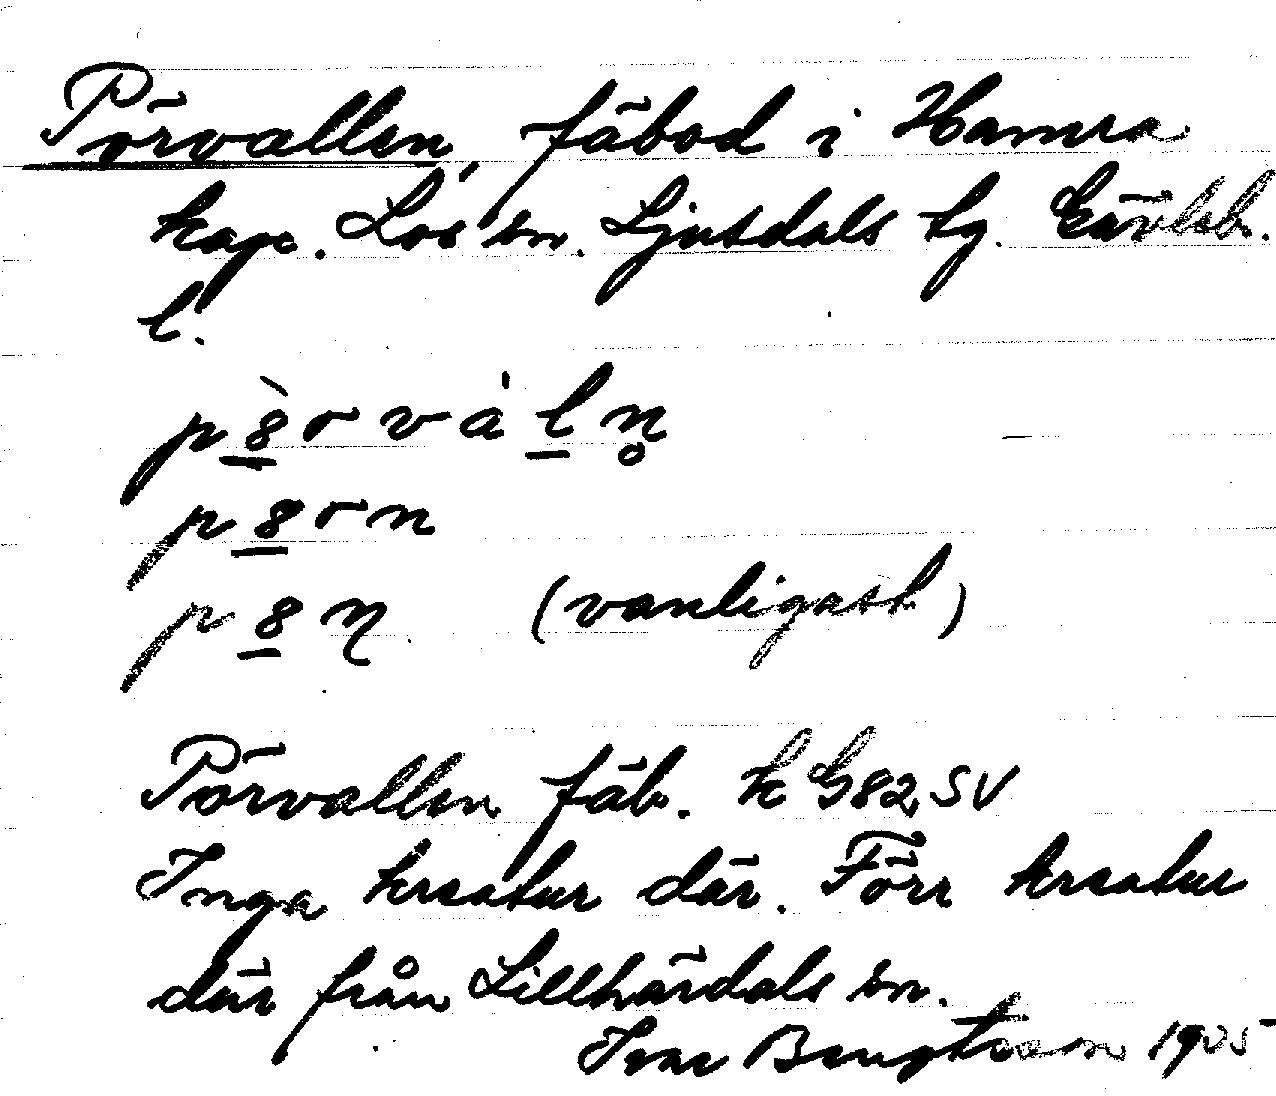 Pörvallen, fäbod i Hamra
kap. Los sn. Ljusdals tg. Gävleb.
l.
p8̀rvàln̥
p8rn
p8ɳ (vanligast)
Pörvallen fäb. k G82 SV
Inga kreatur där. Förr kreatur
där från Lillhärdals sn.
Ivar Bengtsson 1935